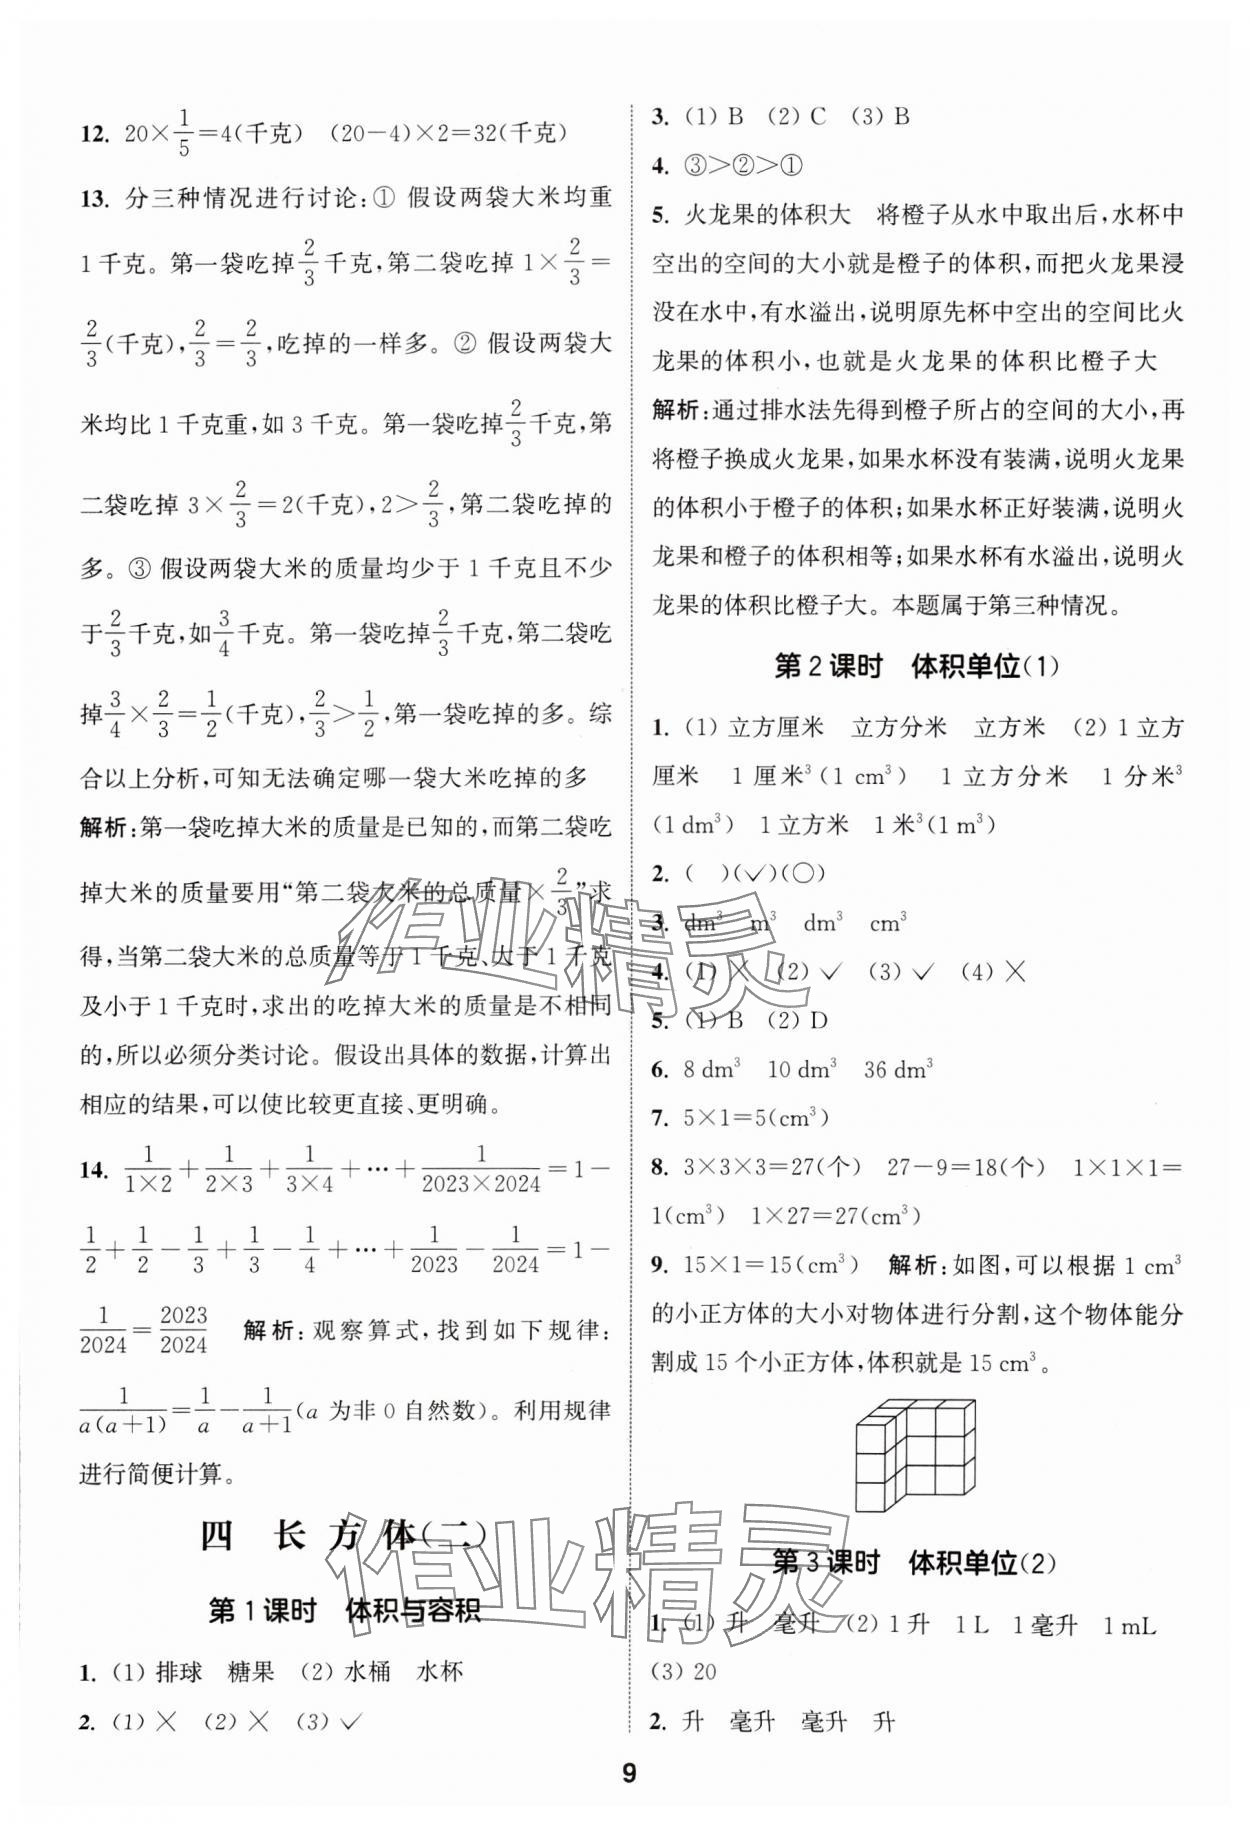 12. 20×1/5=4(千克) (20-4)×2=32(千克)
13. 分三种情况进行讨论:① 假设两袋大米均重
1千克。第一袋吃掉2/3千克,第二袋吃掉1×2/3=
2/3(千克),2/3=2/3,吃掉的一样多。② 假设两袋大
米均比1千克重,如3千克。第一袋吃掉2/3千克,第
二袋吃掉3×2/3=2(千克),2>2/3,第二袋吃掉的
多。③ 假设两袋大米的质量均少于1千克且不少
于2/3千克,如3/4千克。第一袋吃掉2/3千克,第二袋吃
掉3/4×2/3=1/2(千克),2/3>1/2,第一袋吃掉的多。综
合以上分析,可知无法确定哪一袋大米吃掉的多
解析:第一袋吃掉大米的质量是已知的,而第二袋吃
掉大米的质量要用“第二袋大米的总质量×2/3”求
得,当第二袋大米的总质量等于1千克、大于1千克
及小于1千克时,求出的吃掉大米的质量是不相同
的,所以必须分类讨论。假设出具体的数据,计算出
相应的结果,可以使比较更直接、更明确。
14. 1/(1×2)+1/(2×3)+1/(3×4)+…+1/(2023×2024)=1-
1/2+1/2-1/3+1/3-1/4+…+1/2023-1/2024=1-
1/2024=2023/2024 解析:观察算式,找到如下规律:
1/(a(a+1))=1/a-1/(a+1)(a为非0自然数)。利用规律
进行简便计算。
四 长方体(二)
第1课时 体积与容积
1. (1)排球 糖果 (2)水桶 水杯
2. (1)× (2)× (3)✓
3. (1)B (2)C (3)B
4. ③>②>①
5. 火龙果的体积大 将橙子从水中取出后,水杯中
空出的空间的大小就是橙子的体积,而把火龙果浸
没在水中,有水溢出,说明原先杯中空出的空间比火
龙果的体积小,也就是火龙果的体积比橙子大
解析:通过排水法先得到橙子所占的空间的大小,再
将橙子换成火龙果,如果水杯没有装满,说明火龙果
的体积小于橙子的体积;如果水杯正好装满,说明火
龙果和橙子的体积相等;如果水杯有水溢出,说明火
龙果的体积比橙子大。本题属于第三种情况。
第2课时 体积单位(1)
1. (1)立方厘米 立方分米 立方米 (2)1立方
厘米 1厘米³(1 cm³) 1立方分米 1分米³
(1 dm³) 1立方米 1米³(1 m³)
2. ( )(✓)(○)
3. dm³ m³ dm³ cm³
4. (1)× (2)✓ (3)✓ (4)×
5. (1)B (2)D
6. 8 dm³ 10 dm³ 36 dm³
7. 5×1=5(cm³)
8. 3×3×3=27(个) 27-9=18(个) 1×1×1=
1(cm³) 1×27=27(cm³)
9. 15×1=15(cm³) 解析:如图,可以根据1 cm³
的小正方体的大小对物体进行分割,这个物体能分
割成15个小正方体,体积就是15 cm³。
第3课时 体积单位(2)
1. (1)升 毫升 (2)1升 1 L 1毫升 1 mL
(3)20
2. 升 毫升 毫升 升
9
作业精灵
作业精灵